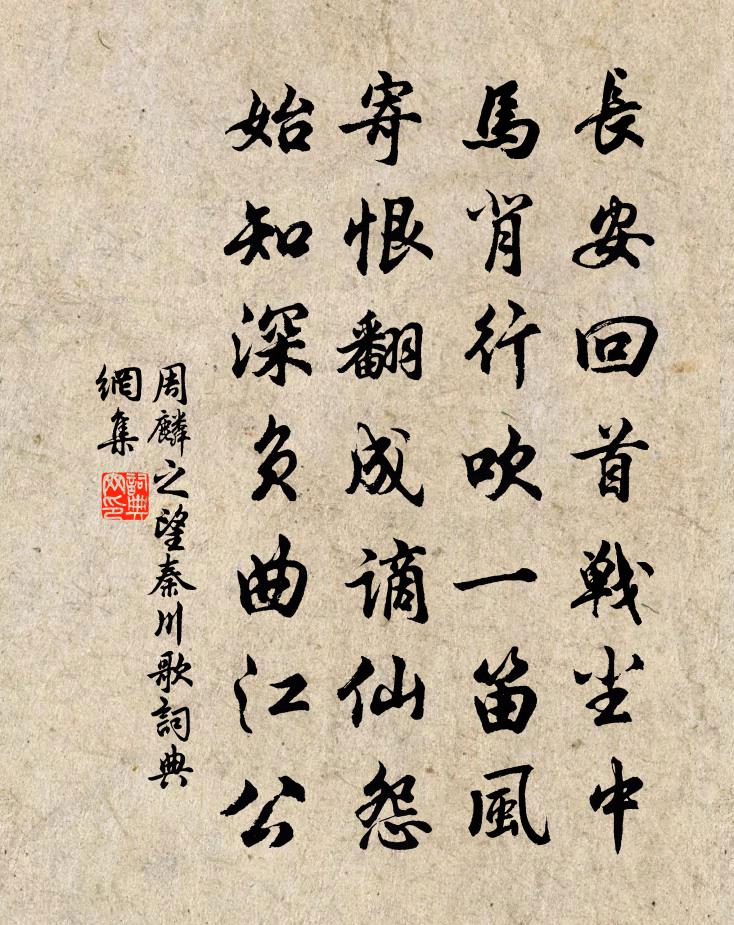 長安回首戰尘中
馬背行吹一笛風
寄恨翻成謫仙怨
始知深負曲江公
周麟之望秦川歌詞典
網集
詞典網印